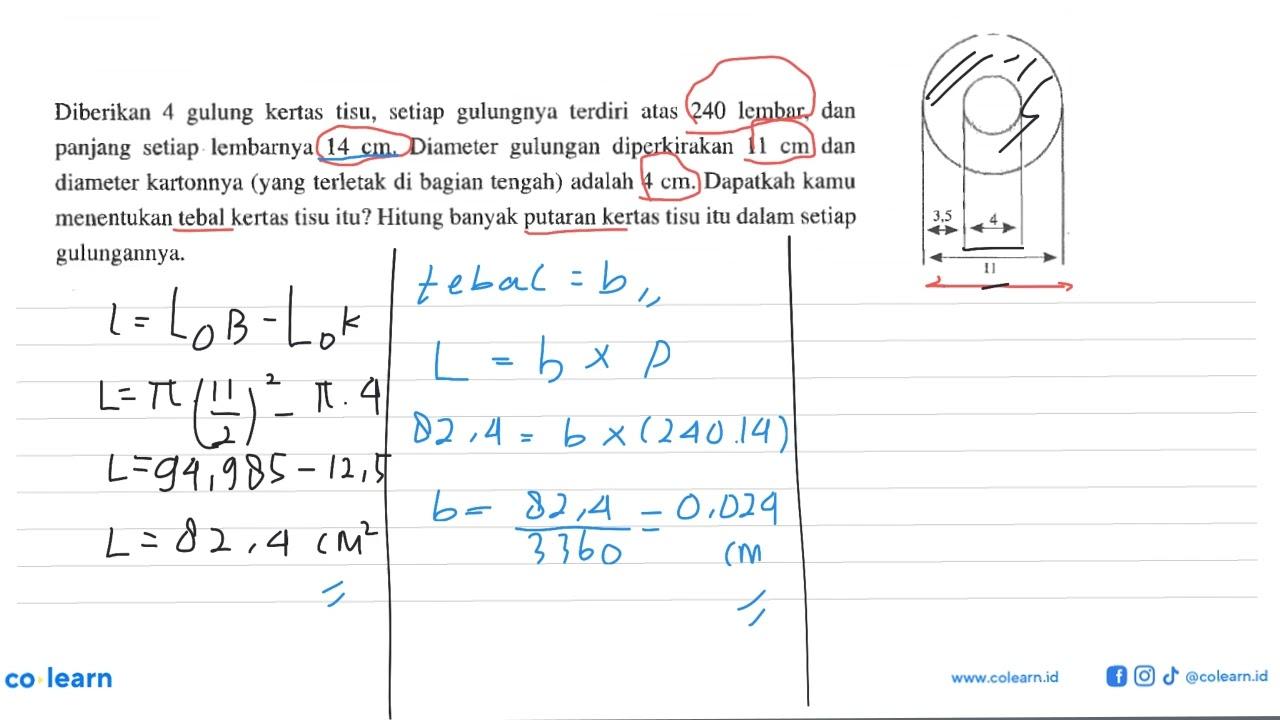 Diberikan 4 gulung kertas tisu, setiap gulungnya terdiri atas 240 lembar, dan
panjang setiap lembarnya 14 cm. Diameter gulungan diperkirakan 11 cm dan
diameter kartonnya (yang terletak di bagian tengah) adalah 4 cm. Dapatkah kamu
menentukan tebal kertas tisu itu? Hitung banyak putaran kertas tisu itu dalam setiap
gulungannya.
3,5 4
11
L = LOB - LOK
L = π (11/2)² - π . 4
L = 94,985 - 12,5
L = 82,4 cm²
tebal = b
L = b × p
82,4 = b × (240.14)
b = 82,4/3360 = 0,024
cm
co learn
www.colearn.id @colearn.id